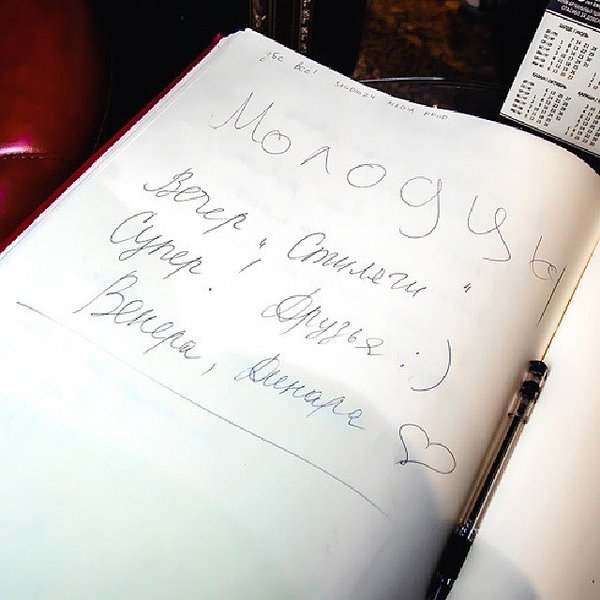 Молодцы
Вечер "Стиляги"
Супер! Друзья :)
Венера, Динара